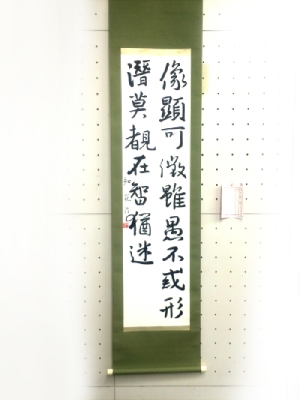 像顯可徵雖愚不惑形
潛莫覩在智猶迷